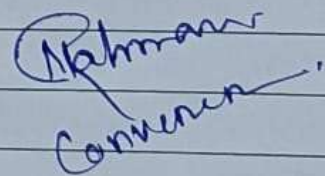 Rahman
Convener